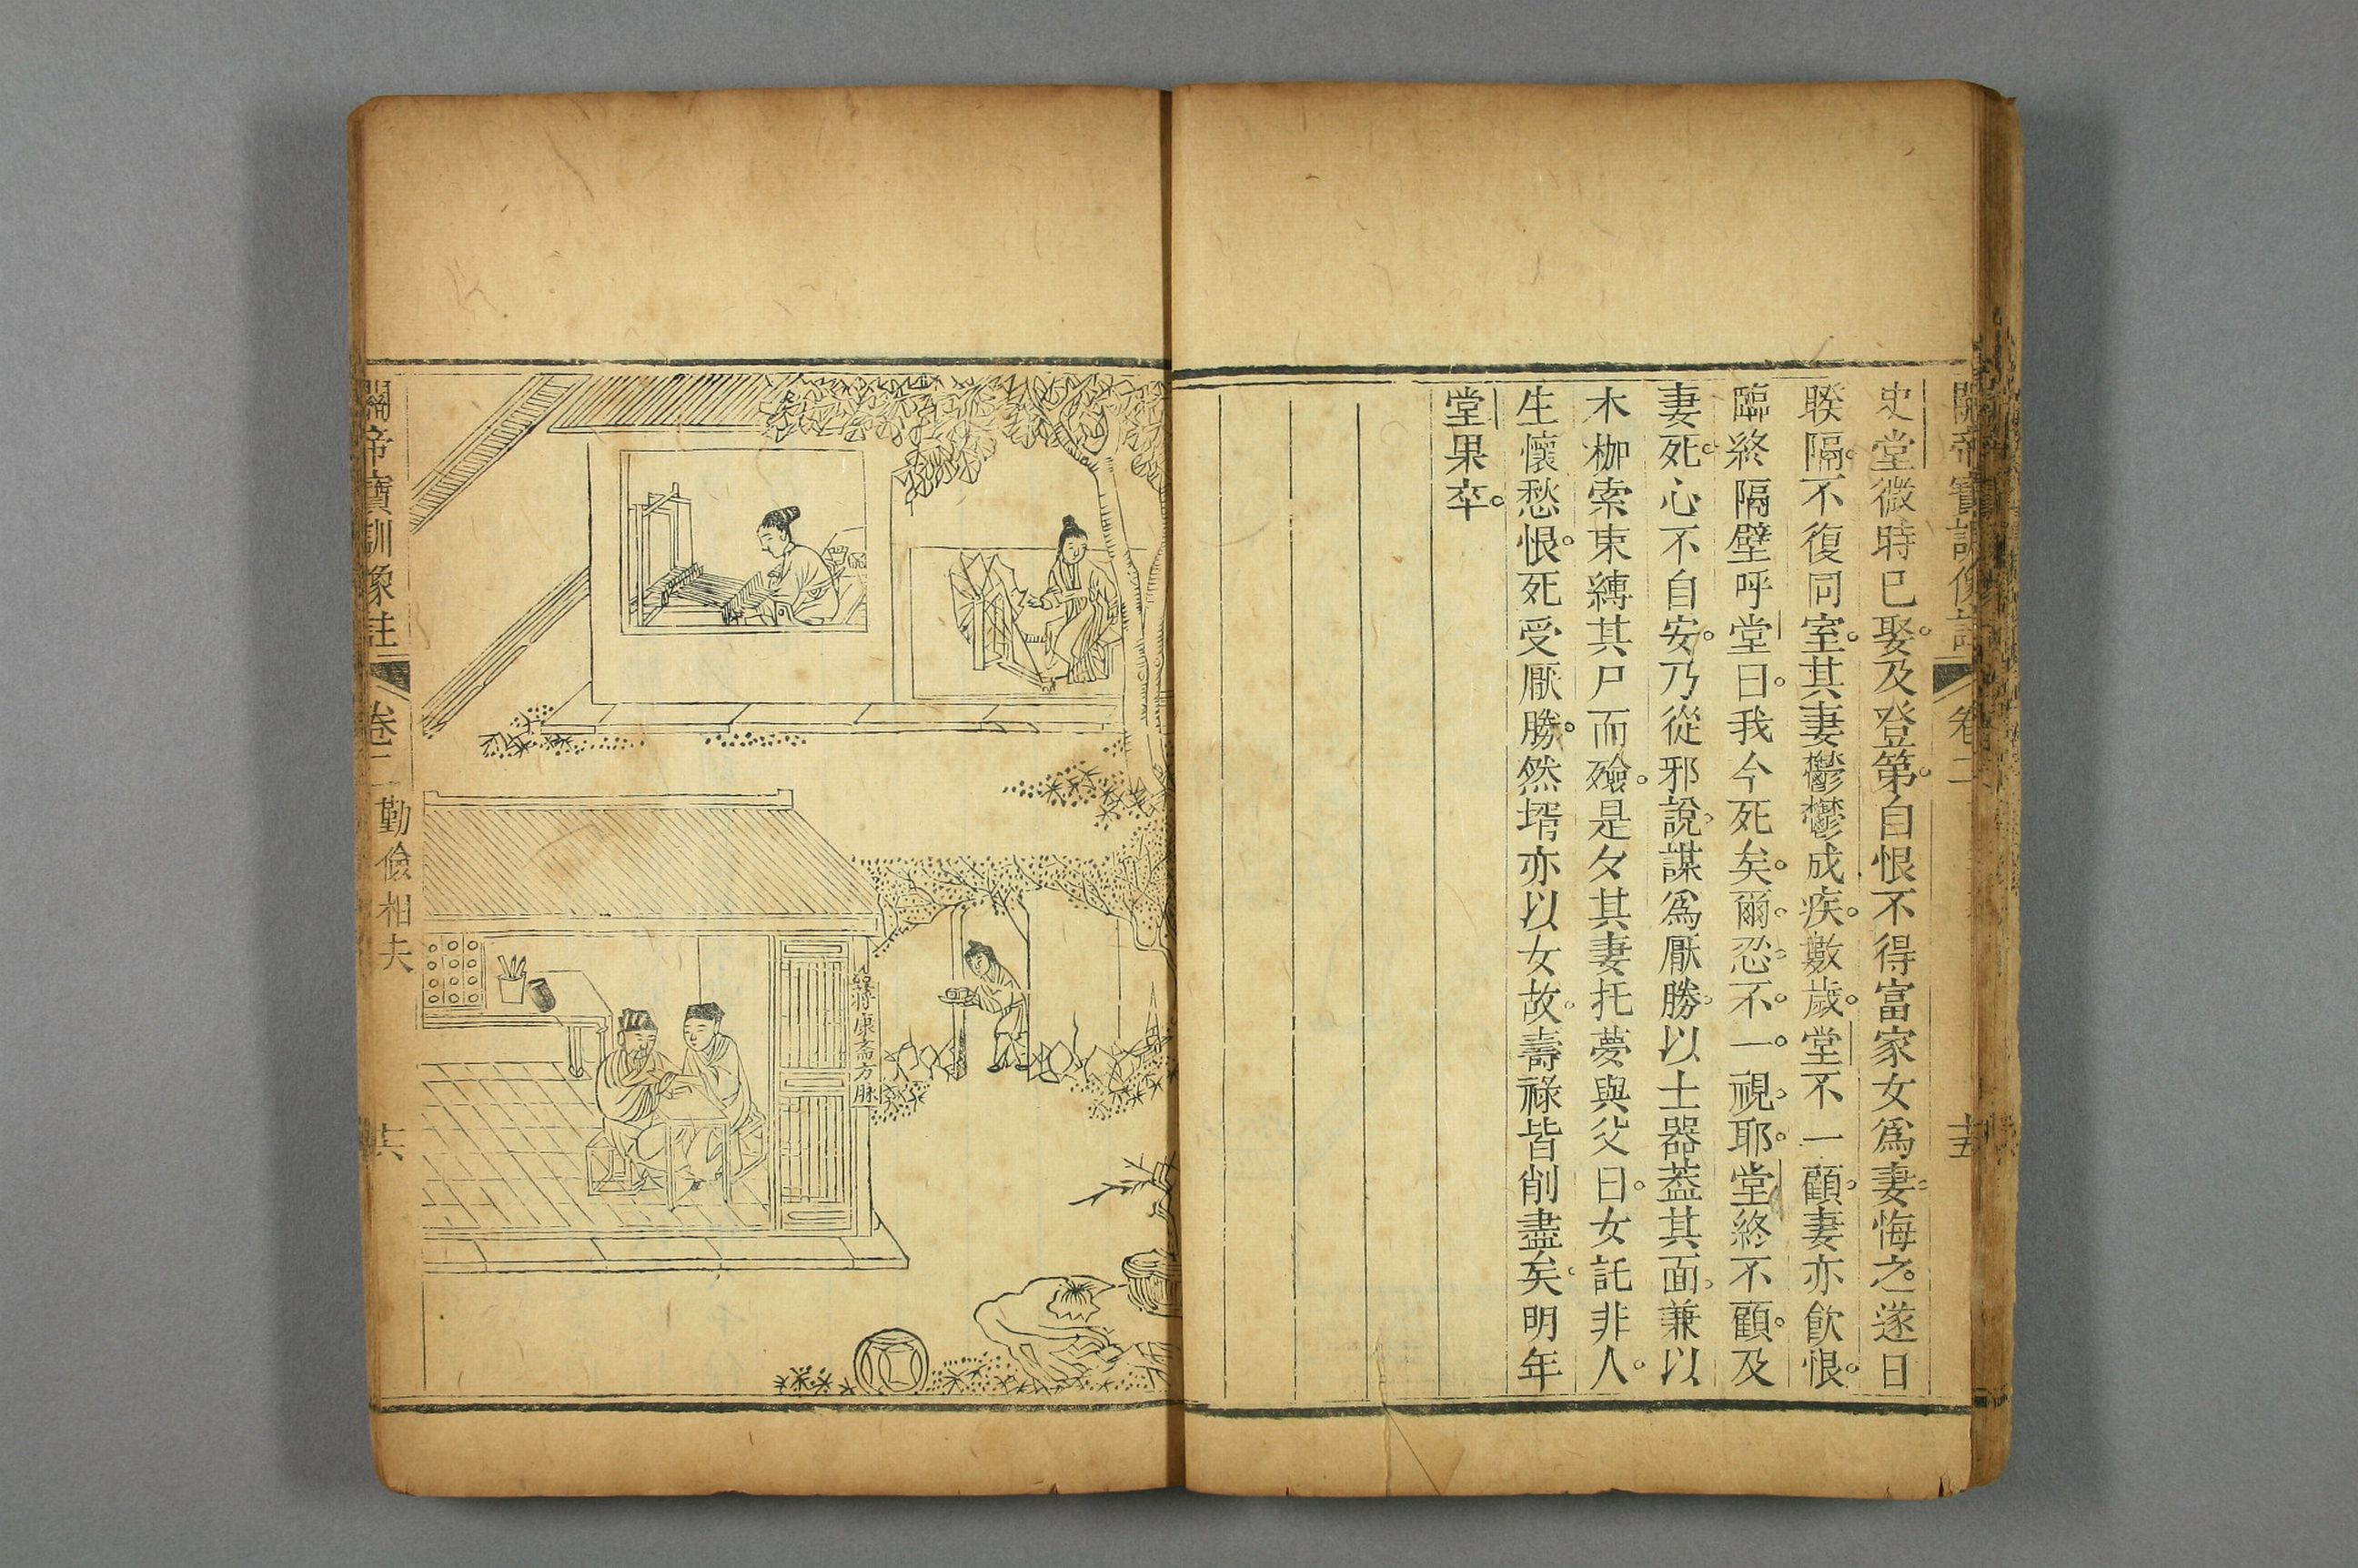 關帝寶訓像註
卷二
十五
史堂微時已娶。及登第。自恨不得富家女爲妻。悔之。遂日
睽隔。不復同室。其妻鬱鬱成疾。數歲。堂不一顧。妻亦飲恨。
臨終隔壁呼堂曰。我今死矣。爾。忍。不。一。視。耶。堂終不顧。及
妻死。心不自安。乃從邪說。謀爲厭勝。以土器蓋其面。兼以
木枷索束縛其尸而殮。是夕其妻托夢與父曰。女託非人。
生懷愁恨。死受厭勝。然壻亦以女故。壽祿皆削盡矣。明年
堂果卒。
蔣康斎方脉
關帝寶訓像註
卷二
勤儉相夫
共